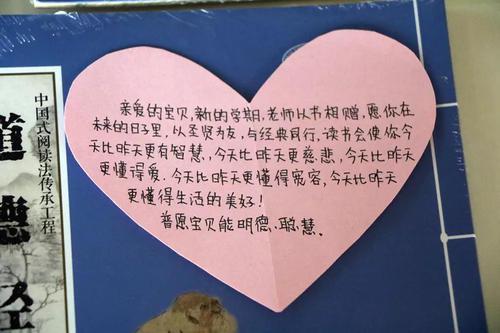 亲爱的宝贝,新的学期,老师以书相赠,愿你在
未来的日子里,以圣贤为友,与经典同行,读书会使你今
天比昨天更有智慧、今天比昨天更慈悲,今天比昨天
更懂得爱.今天比昨天更懂得宽容,今天比昨天
更懂得生活的美好!
普愿宝贝能明德、聪慧、
中国式阅读法传承工程
道德经